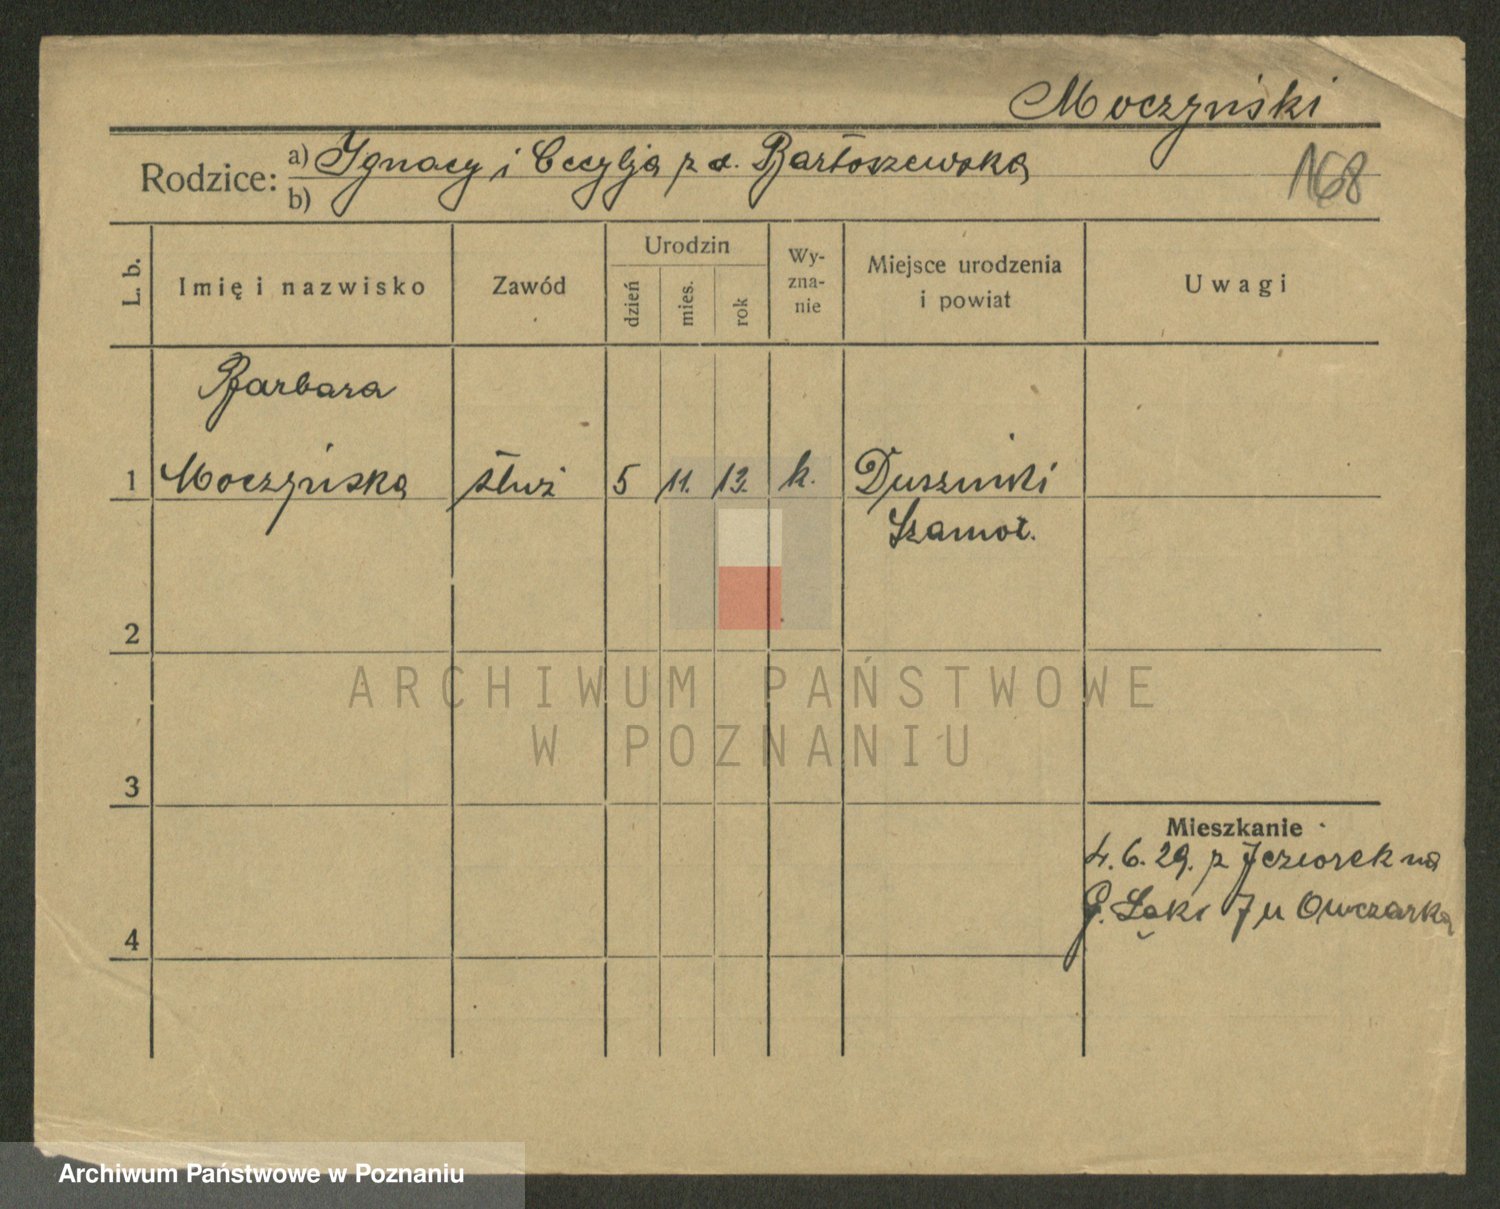 Moczyński
Rodzice: a) Ignacy i Cecylja z d. Bartoszewska
b)
168
L. b.
Imię i nazwisko
Zawód
Urodzin
dzień
mies.
rok
Wy-
zna-
nie
Miejsce urodzenia
i powiat
Uwagi
Barbara
1 Moczyńska służ 5 11. 13. k. Duszniki
Szamot.
2
3
4
Mieszkanie
4.6.29. z Jeziorek na
G. Łąki 7 u Owczarka
ARCHIWUM PAŃSTWOWE
W POZNANIU
Archiwum Państwowe w Poznaniu